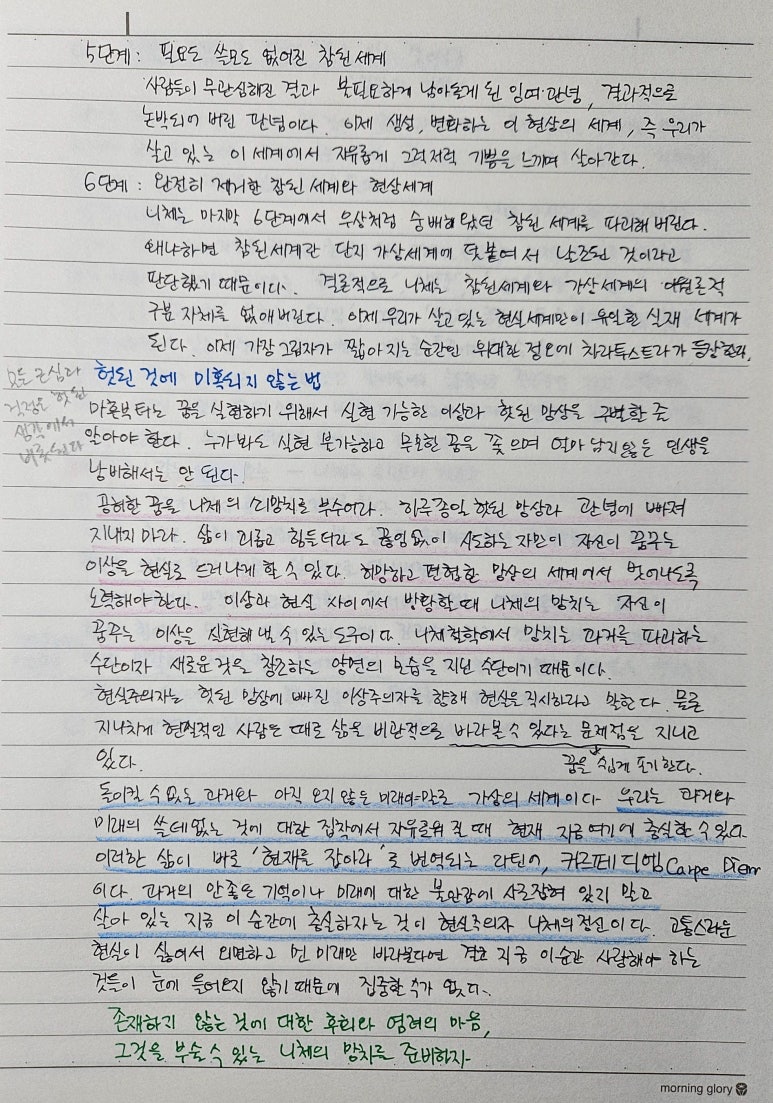 5단계: 필요도 쓸모도 없어진 참된 세계
사람들이 무관심해진 결과 불필요하게 남아돌게 된 잉여 관념, 결과적으로
논박되어 버린 관념이다. 이제 생성, 변화하는 이 현상의 세계, 즉 우리가
살고 있는 이 세계에서 자유롭게 그럭저럭 기쁨을 느끼며 살아간다.
6단계: 완전히 제거한 참된 세계와 현상세계
니체는 마지막 6단계에서 우상처럼 숭배해 왔던 참된 세계를 파괴해 버린다.
왜냐하면 참된 세계란 단지 가상세계에 덧붙여서 날조된 것이라고
판단했기 때문이다. 결론적으로 니체는 참된세계와 가상세계의 이원론적
구분 자체를 없애버린다. 이제 우리가 살고 있는 현실세계만이 유일한 실재 세계가
된다. 이제 가장 그림자가 짧아지는 순간인 위대한 정오에 차라투스트라가 등장한다.
모든 근심과
걱정은 헛된
생각에서
비롯된다
헛된 것에 미혹되지 않는 법
마흔부터는 꿈을 실현하기 위해서 실현 가능한 이상과 헛된 망상을 구별할 줄
알아야 한다. 누가봐도 실현 불가능하고 무모한 꿈을 좇으며 얼마 남지 않은 인생을
낭비해서는 안 된다.
공허한 꿈을 니체의 쇠망치로 부수어라. 하루종일 헛된 망상과 관념에 빠져
지내지 마라. 삶이 괴롭고 힘들더라도 끊임없이 시도하는 자만이 자신이 꿈꾸는
이상을 현실로 드러나게 할 수 있다. 희망하고 편협한 망상의 세계에서 벗어나도록
노력해야한다. 이상과 현실 사이에서 방황할 때 니체의 망치는 자신이
꿈꾸는 이상을 실현해 낼 수 있는 도구이다. 니체철학에서 망치는 과거를 파괴하는
수단이자 새로운 것을 창조하는 양면의 모습을 지닌 수단이기 때문이다.
현실주의자는 헛된 망상에 빠진 이상주의자를 향해 현실을 직시하라고 말한다. 물론
지나치게 현실적인 사람은 때로 삶을 비관적으로 바라볼 수 있다는 문제점을 지니고
있다.
꿈을 쉽게 포기한다.
돌이킬 수 없는 과거와 아직 오지 않은 미래야말로 가상의 세계이다. 우리는 과거와
미래의 쓸데없는 것에 대한 집착에서 자유로워질 때 현재 지금 여기에 충실할 수 있다.
이러한 삶이 바로 '현재를 잡아라'로 번역되는 라틴어, 카르페 디엠 Carpe Diem
이다. 과거의 안좋은 기억이나 미래에 대한 불안감에 사로잡혀 있지 말고
살아 있는 지금 이 순간에 충실하자는 것이 현실주의자 니체의 정신이다. 고통스러운
현실이 싫어서 외면하고 먼 미래만 바라본다면 결코 지금 이순간 사랑해야 하는
것들이 눈에 들어오지 않기 때문에 집중할 수가 없다.
존재하지 않는 것에 대한 후회와 염려의 마음,
그것을 부술 수 있는 니체의 망치를 준비하자.
morning glory